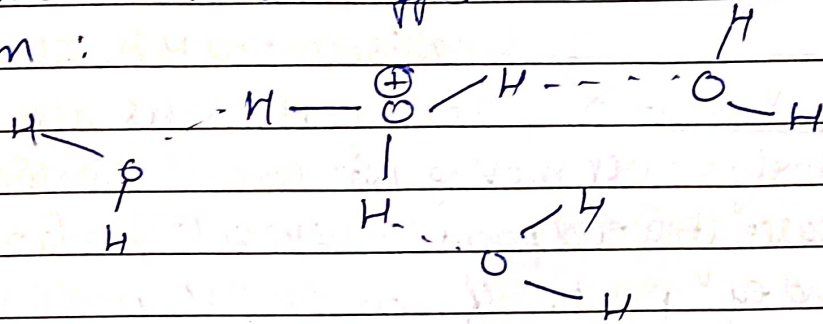 n :
H
⊕
H — O / H - - - - O
H
H
O
H
H
H
O
H